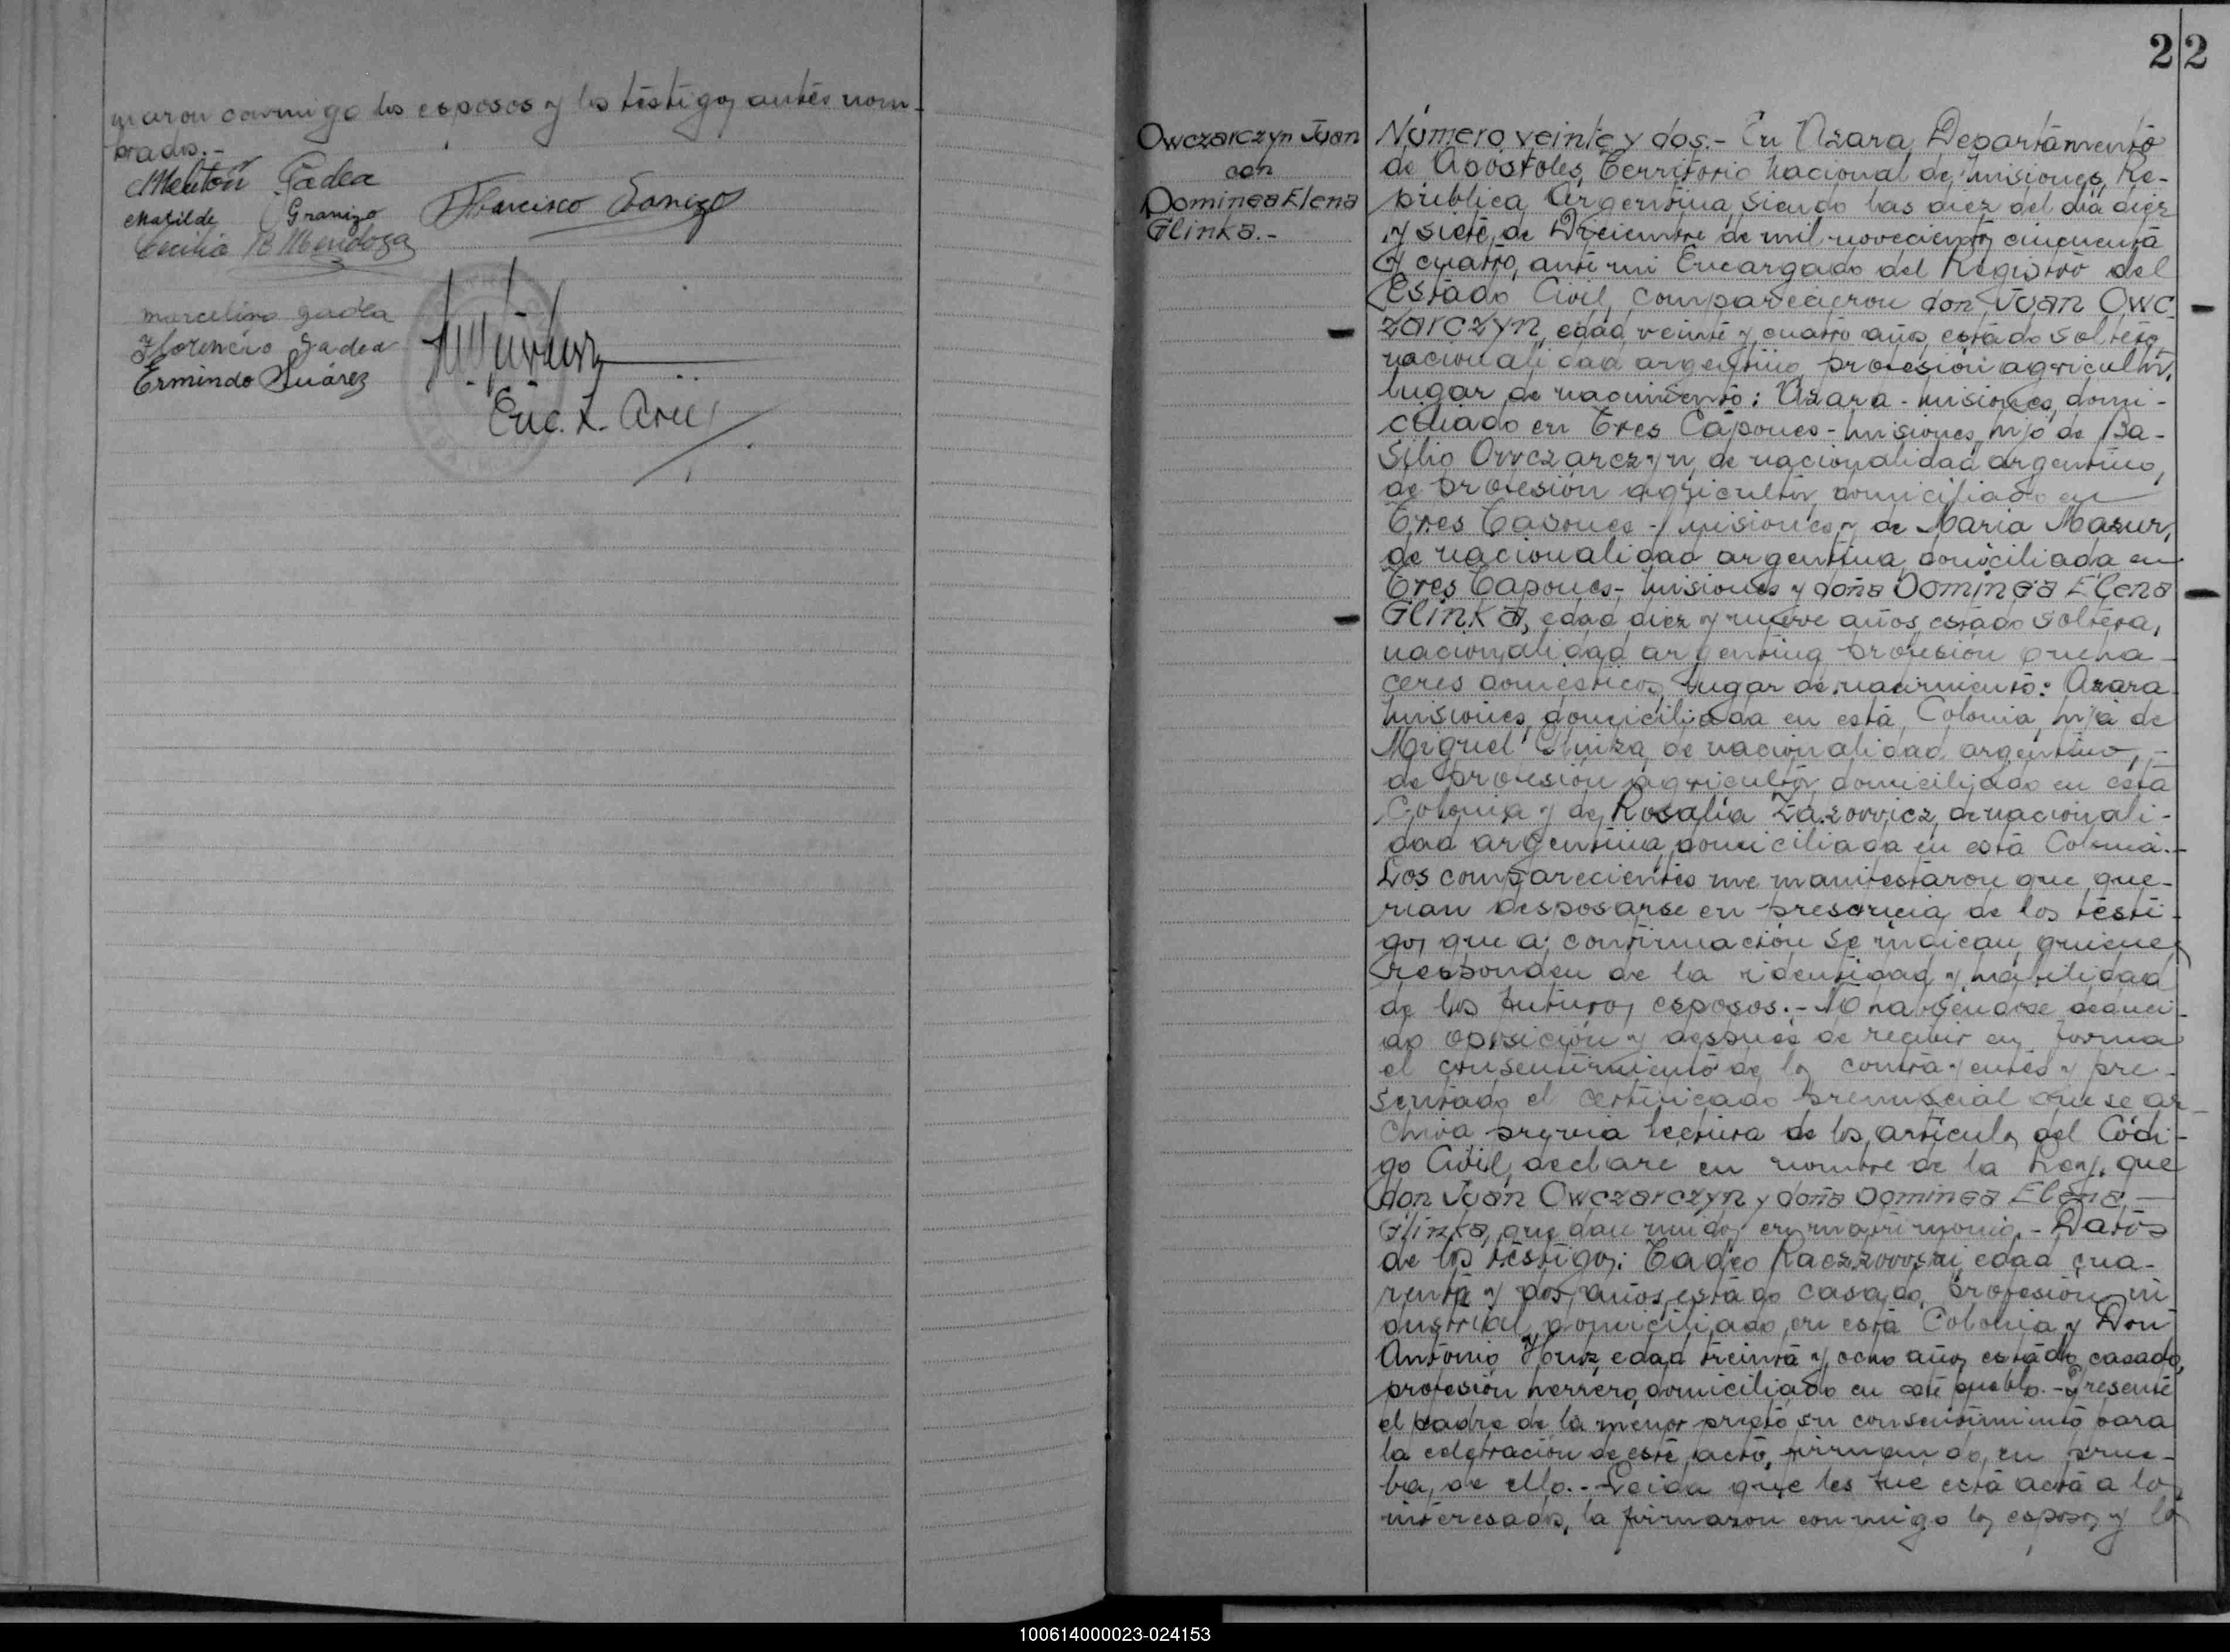 maron conmigo los esposos y los testigos antes nom-
brados.-
Meliton Gadea
Matilde Granizo
Francisco Granizo
Cecilia B Mendoza
marcelino gadea
Florencio Gadea
Ermindo Suárez
Enc.
22
Owczarczyn Juan
con
Dominga Elena
Glinka.-
Número veinte y dos.- En Azara, Departamento
de Apóstoles, Territorio Nacional de Misiones, Re-
pública Argentina, siendo las diez del día diez
y siete de Diciembre de mil novecientos cincuenta
y cuatro, ante mi Encargado del Registro del
Estado Civil, comparecieron don Juan Owc-
zarczyn, edad veinte y cuatro años, estado soltero,
nacionalidad argentino, profesión agricultor,
lugar de nacimiento: Azara - Misiones, domi-
ciliado en Tres Capones - Misiones, hijo de Ba-
silio Owczarczyn, de nacionalidad argentino,
de profesión agricultor, domiciliado en
Tres Capones - Misiones y de Maria Mazur,
de nacionalidad argentina, domiciliada en
Tres Capones - Misiones y doña Dominga Elena
Glinka, edad diez y nueve años, estado soltera,
nacionalidad argentina, profesión queha-
ceres domésticos, lugar de nacimiento: Azara
Misiones, domiciliada en esta Colonia, hija de
Miguel Glinka, de nacionalidad argentino, -
de profesión agricultor, domiciliado en esta
Colonia y de Rosalía Zazowicz, de nacionali-
dad argentina, domiciliada en esta Colonia.-
Los comparecientes me manifestaron que que-
rían desposarse en presencia de los testi-
gos que a continuación se indican, quienes
responden de la identidad y habilidad
de los futuros esposos.- No habiéndose deduci-
do oposición y después de recibir en forma
el consentimiento de los contrayentes y pre-
sentado el certificado prenupcial que se ar-
chiva, previa lectura de los artículos del Códi-
go Civil, declare en nombre de la Ley, que
don Juan Owczarczyn y doña Dominga Elena -
Glinka, quedan unidos en matrimonio.- Datos
de los testigos: Tadeo edad cua-
renta y dos años, estado casado, profesión in
dustrial, domiciliado en esta Colonia y Don
Antonio edad treinta y ocho años, estado casado,
profesión herrero, domiciliado en este pueblo.- Presente
el padre de la menor prestó su consentimiento para
la celebración de este acto, firmando en prue-
ba de ello.- Leida que les fue esta acta a los
interesados, la firmaron conmigo los esposos y los
100614000023-024153